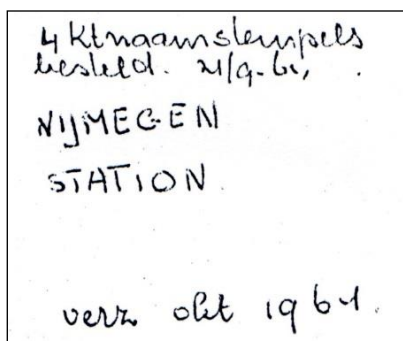 4 Ktnaamstempels
besteld. 21/9-61,
NIJMEGEN
STATION
verz okt 1961.